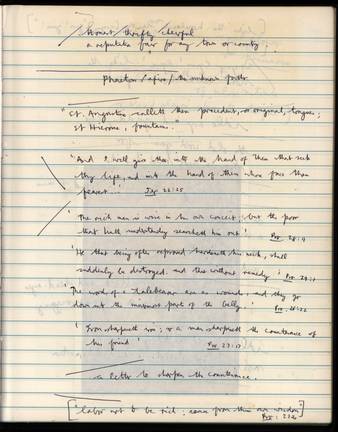 honest thrifty cheerful
a reputation fair for any town or county;
Phaeton / afire / the unknown
"St. Augustine calleth them precedent, or original, tongues;
St Hierome, fountains."
'And I will give thee into the hand of them that seek
thy life, and into the hand of them whose face thou
fearest...' Jer 22:25
'The rich man is wise in his own conceit; but the poor
that hath understanding searcheth him out' Prv. 28:11
'He that being often reproved hardeneth his neck, shall
suddenly be destroyed, and that without remedy' Prv 29:1
'The words of a talebearer are as wounds, and they go
down into the innermost part of the belly.' Prv 26:22
'Iron sharpeneth iron; so a man sharpeneth the countenance of
his friend' Prv 27:17
a letter to sharpen the countenance.
["Labor not to be rich; cease from thine own wisdom"]